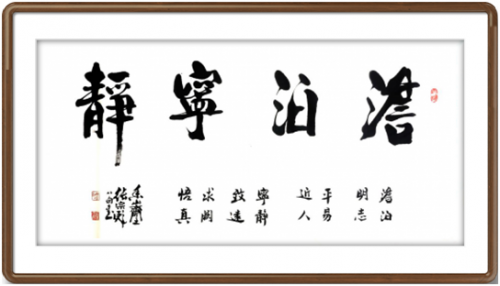 澹泊寧靜
澹泊
明志
平易
近人
寧靜
致遠
求
悟真